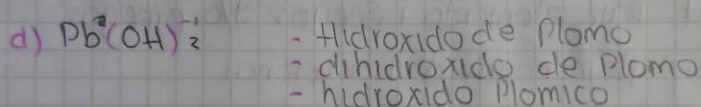 d) Pb²(OH)₂⁻¹ - Hidroxido de Plomo
- dihidroxido de Plomo
- hidroxido Plomico